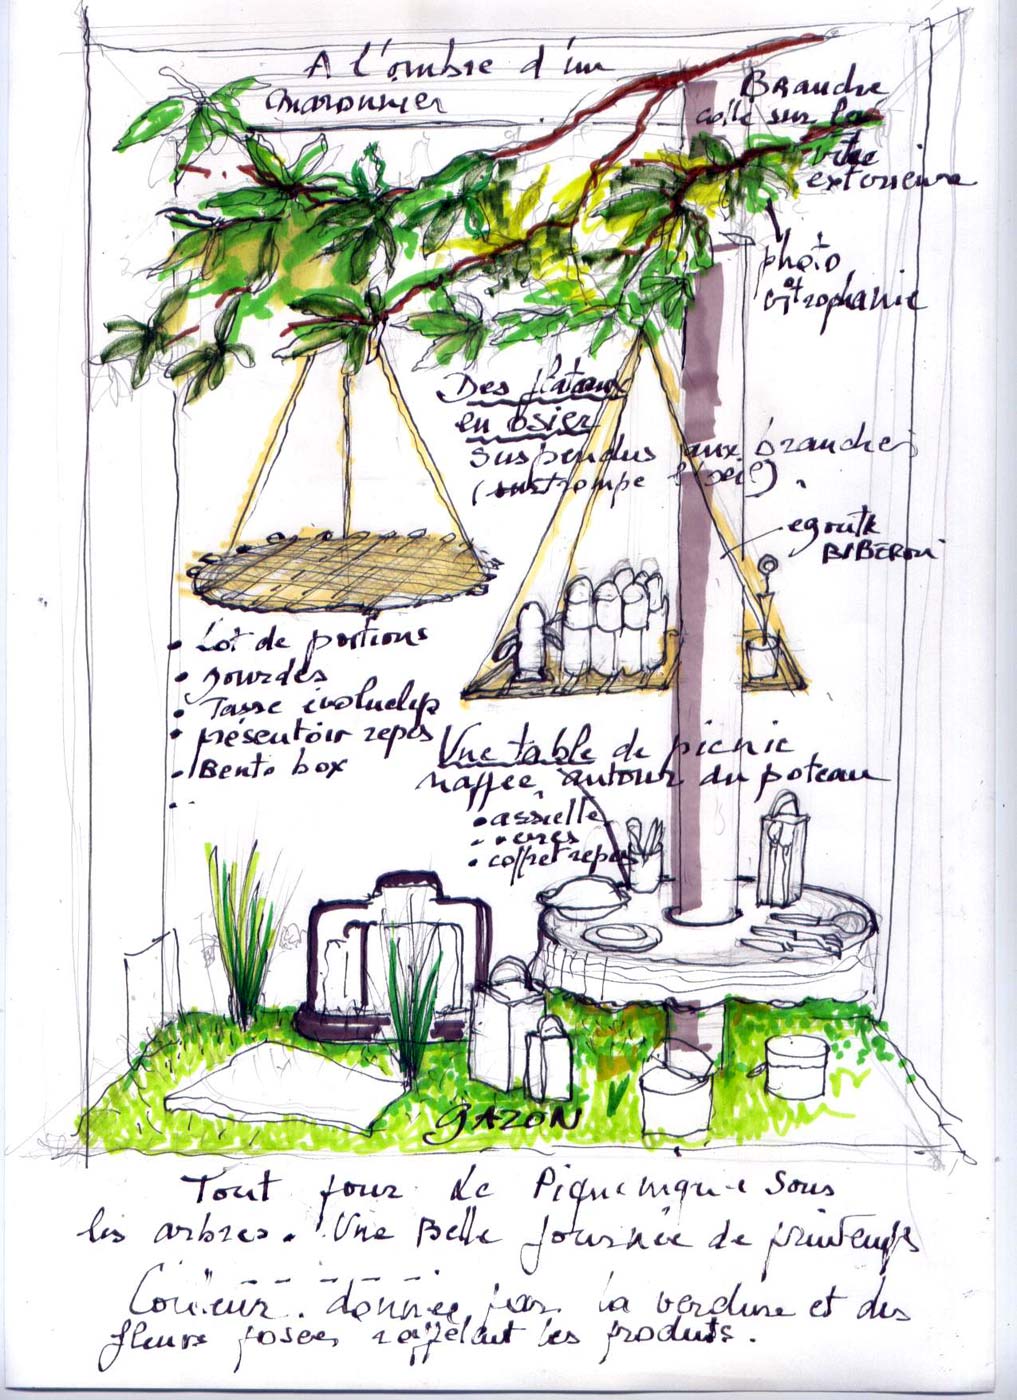 A l'ombre d'un
maronnier
Branche
colle sur la
vitre
exterieure
photo
vitrophanie
Des plateaux
en osier
suspendus aux branches
(trompe l'oeil).
egoutte
BIBERON
• Lot de portions
• gourdes
• Tasse
• présentoir repas
• Bento box
Une table de picnic
nappée, autour du poteau
• assiette
• verres
• coffret repas
GAZON
Tout pour le Piquenique sous
les arbres. Une Belle journée de printemps
Couleur donnée par la verdure et des
fleurs posées rappelant les produits.